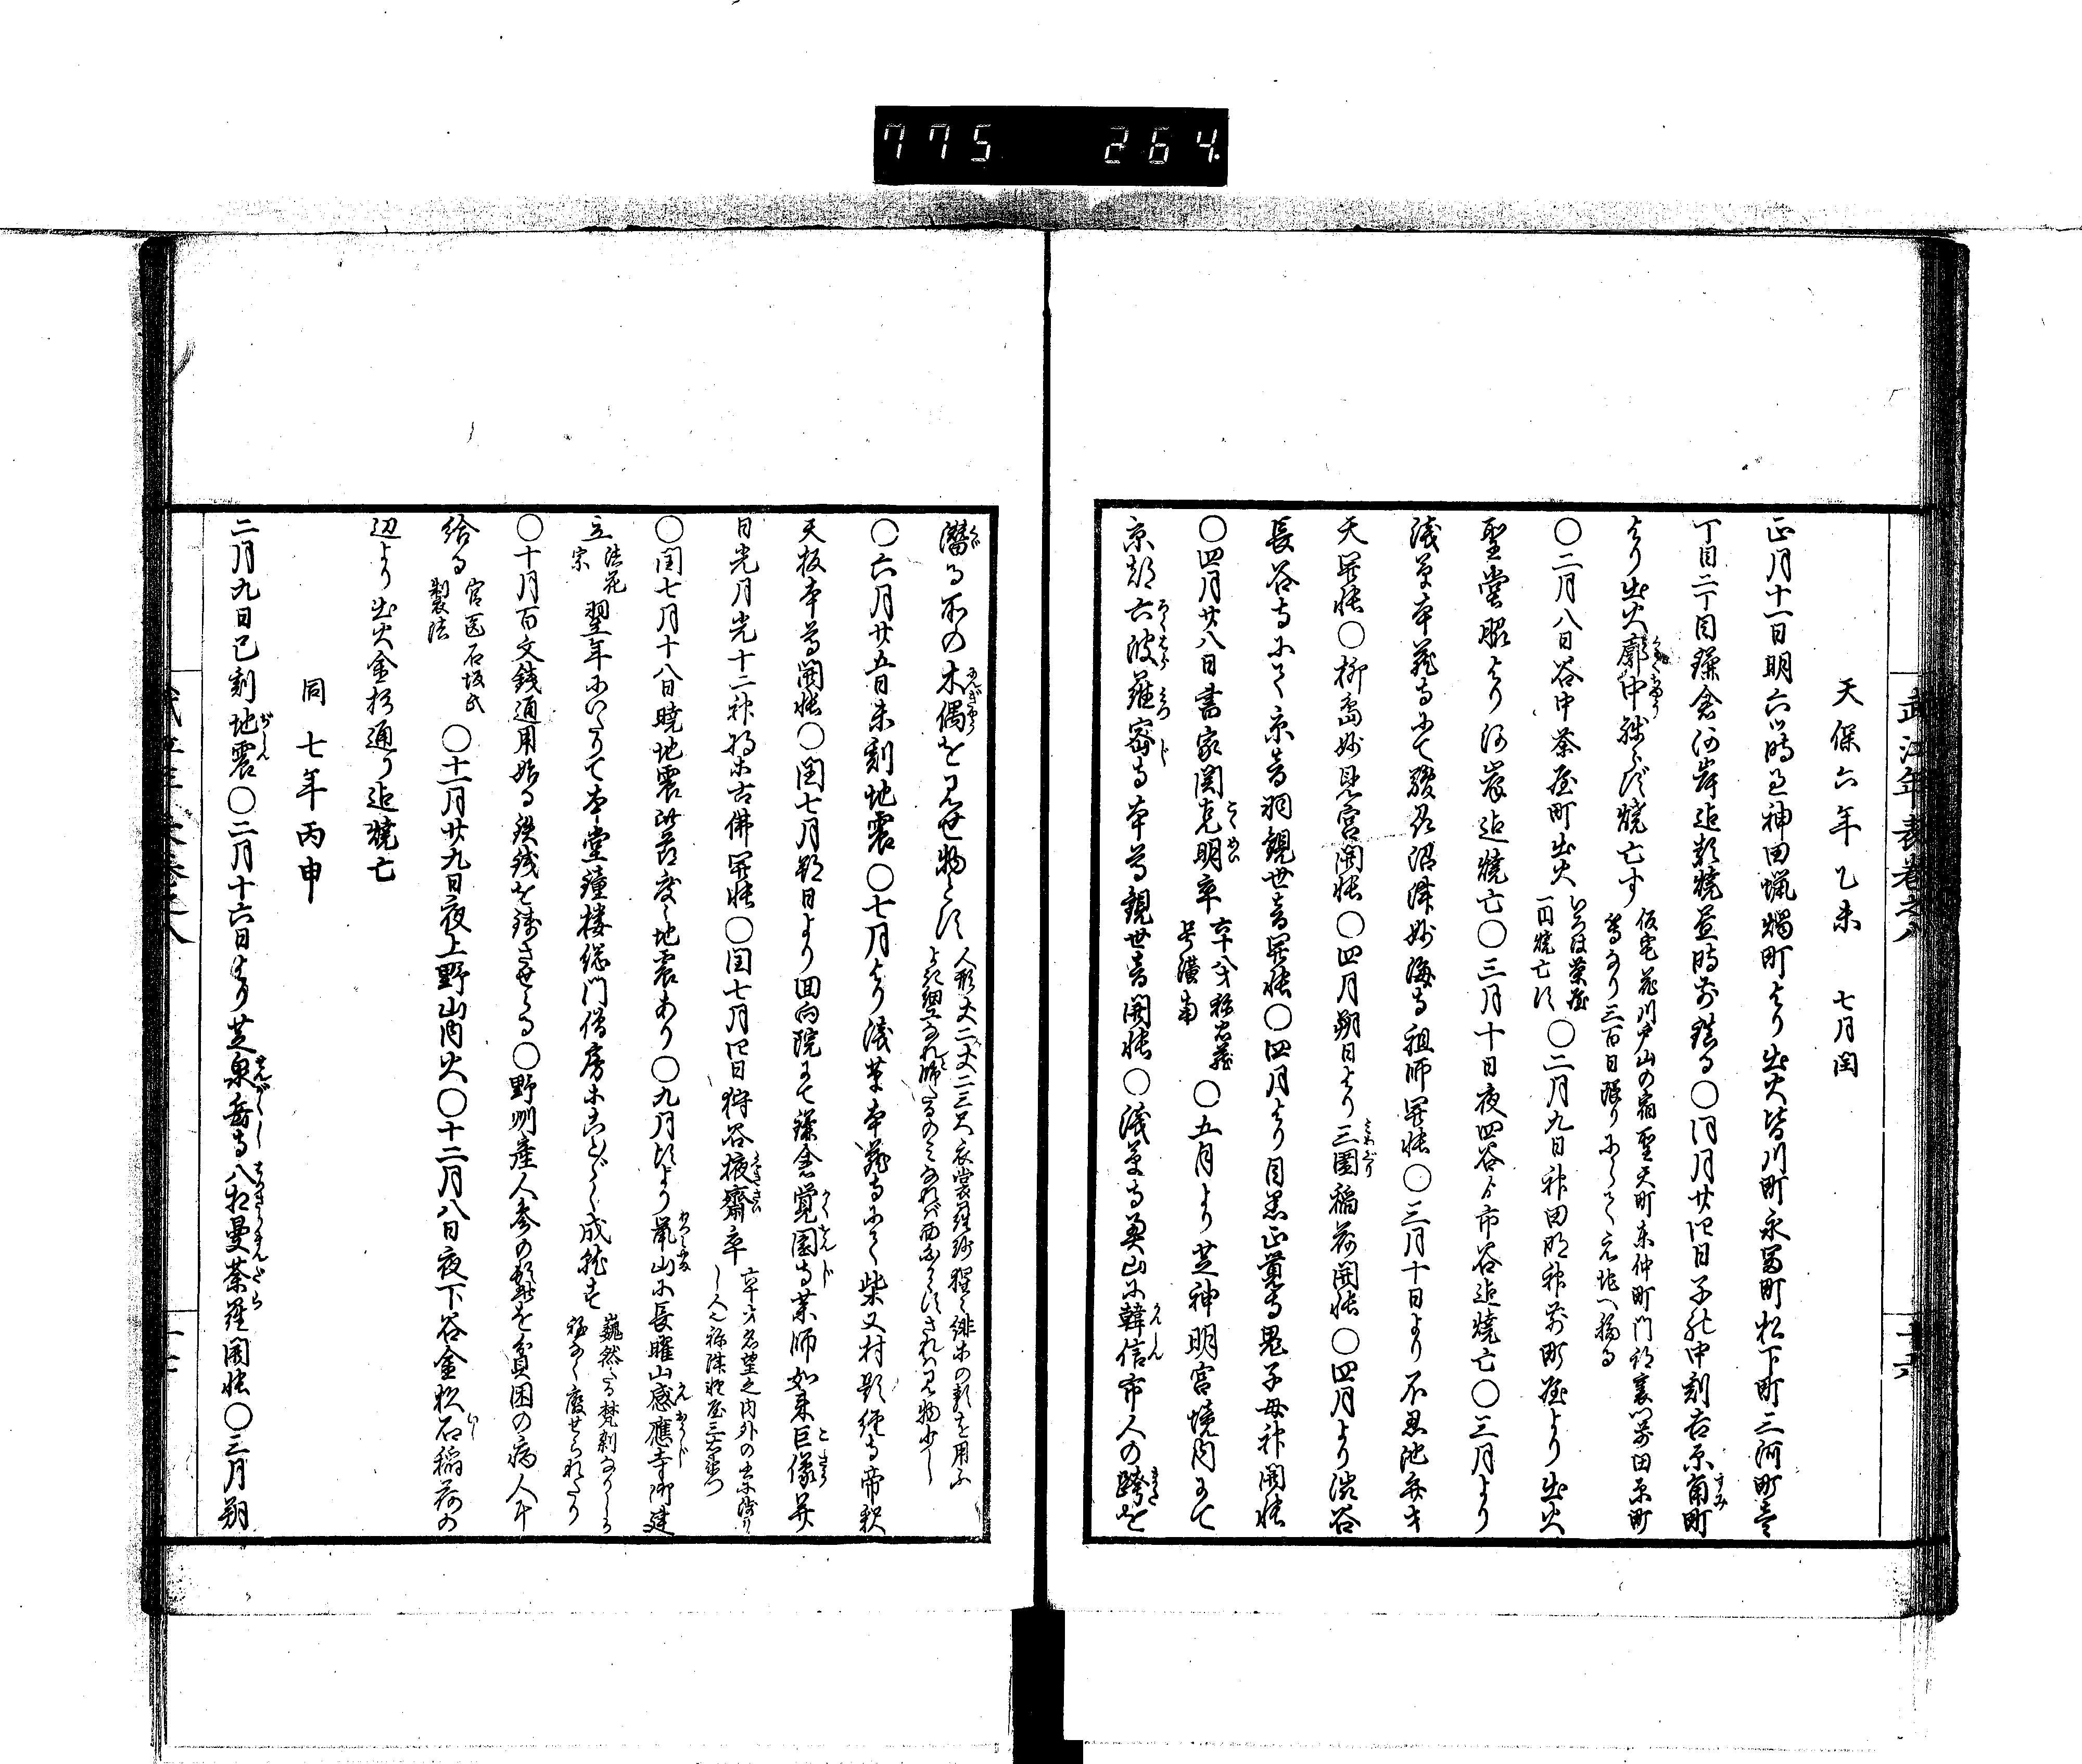 775 264.
武江年表巻之八
天保六年乙未 七月閏
正月十一日明六ツ時過神田蝋燭町より出火皆川町永冨町松下町三河町壱
丁目二丁目鎌倉河岸迄類焼昼時前鎮る○同月廿四日子の中刻吉原角町
より出火廓中残らず焼亡す 仮宅花川戸山の宿聖天町東仲町門前裏門前田原町
等なり三百日限りにして元地へ移る
○二月八日谷中茶屋町出火 いろは茶屋
一円焼亡す ○二月九日神田明神前町屋より出火
聖堂脇より河岸迄焼亡○三月十日夜四谷より市谷迄焼亡○三月より
浅草本蔵寺にて駿州沼津妙海寺祖師開帳○三月十日より不忍池弁才
天開帳○柳島妙見宮開帳○四月朔日より三囲稲荷開帳○四月より渋谷
長谷寺にて京音羽観世音開帳○四月より目黒正覚寺鬼子母神開帳
○四月廿八日書家関克明卒 六十八才称忠蔵
号潢南 ○五月より芝神明宮境内にて
京都六波羅密寺本尊観世音開帳○浅草寺奥山に韓信市人の跨を
潜る所の木偶を見世物とす 人形丈二丈二三尺衣裳羅紗猩々緋等の類を用ふ
○六月廿五日未刻地震○七月より浅草本蔵寺にて柴又村題経寺帝釈
天板本尊開帳○閏七月朔日より回向院にて鎌倉覚園寺薬師如来巨像并
日光月光十二神将等古佛開帳○閏七月四日狩谷掖齋卒
○閏七月十八日暁地震此節度々地震あり○九月頃より鼠山に長曜山感應寺御建
立 法花
宗 翌年にいたりて本堂鐘楼総門僧房等ことごとく成就す 巍然たる梵刹なりしも
程なく廃せられたり
○十月百文銭通用始る鉄銭を鋳させらる○野州産人参の類を貧困の病人に
給る 官医石坂氏
製法 ○十一月廿九日夜上野山内火○十二月八日夜下谷金杉石稲荷の
辺より出火金杉通り迄焼亡
同七年丙申
二月九日巳刻地震○二月十六日より芝泉岳寺八相曼荼羅開帳○三月朔